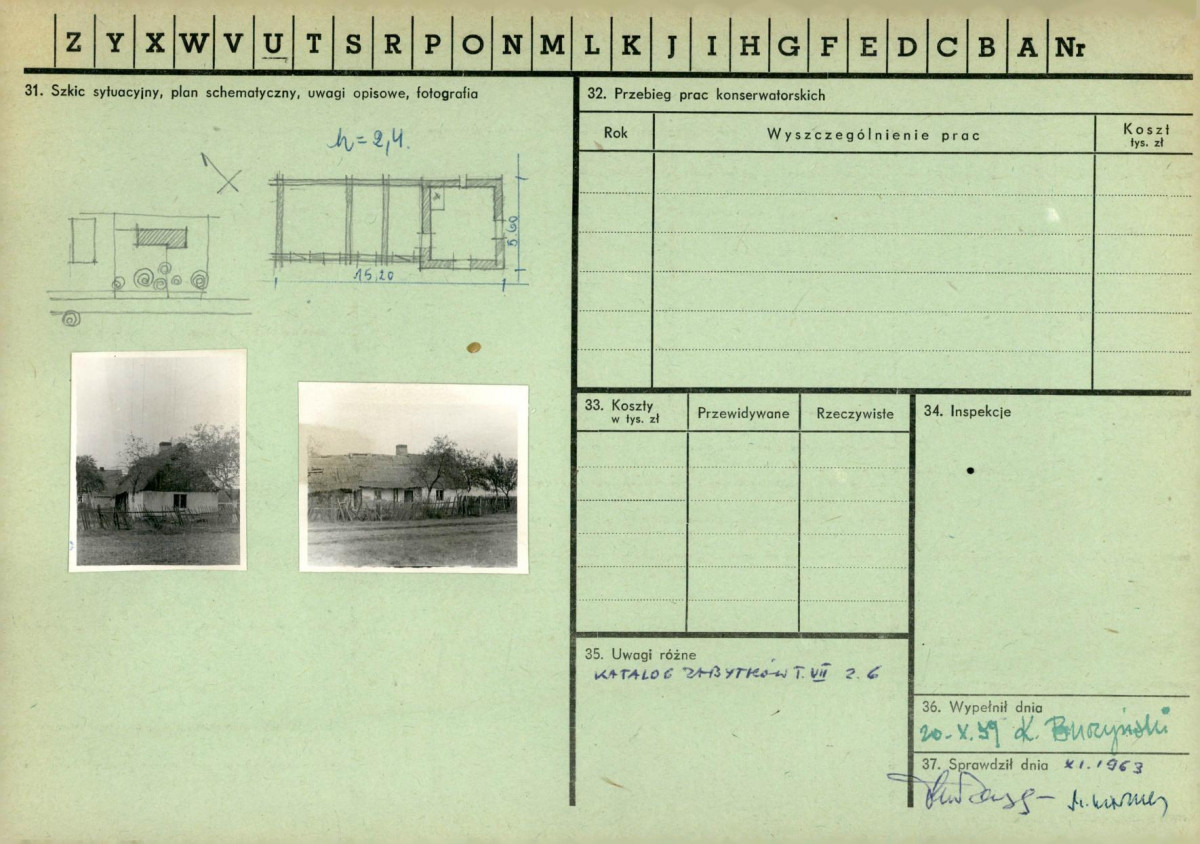 Z Y X W V U T S R P O N M L K J I H G F E D C B A Nr
31. Szkic sytuacyjny, plan schematyczny, uwagi opisowe, fotografia
h=2,4.
5,60
15,20
32. Przebieg prac konserwatorskich
Rok Wyszczególnienie prac Koszt
tys. zł
33. Koszty Przewidywane Rzeczywiste
w tys. zł
34. Inspekcje
35. Uwagi różne
KATALOG ZABYTKÓW T. VII Z. 6
36. Wypełnił dnia
20-X.59 K.
37. Sprawdził dnia XI.1963